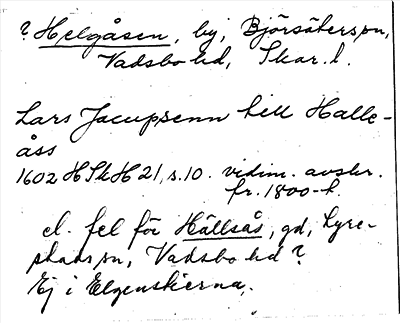 ? Helgåsen, by, Björsäters sn,
Vadsbo hd, Skar. l.
Lars Jacupsenn till Halle-
åss
1602 HSkH 21, s. 10. vidim. avskr.
fr. 1800-t.
el. fel för Hällsås, gd, Lyre-
stads sn, Vadsbo hd ?
Ej i Elgenstierna.